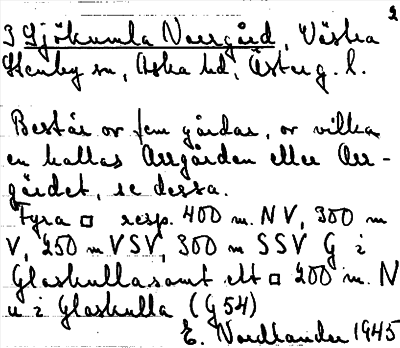 2
3 Sjökumla Norrgård, Västra
Stenby sn, Aska hd, Österg. l.
Består av fem gårdar, av vilka
en kallas Arrgården eller Arr-
gärdet, se dessa.
Fyra □ resp. 400 m. NV, 300 m
V, 250 m VSV, 300 m SSV G i
Glaskulla samt ett □ 200 m. N
u i Glaskulla (G54)
E. Nordlander 1945